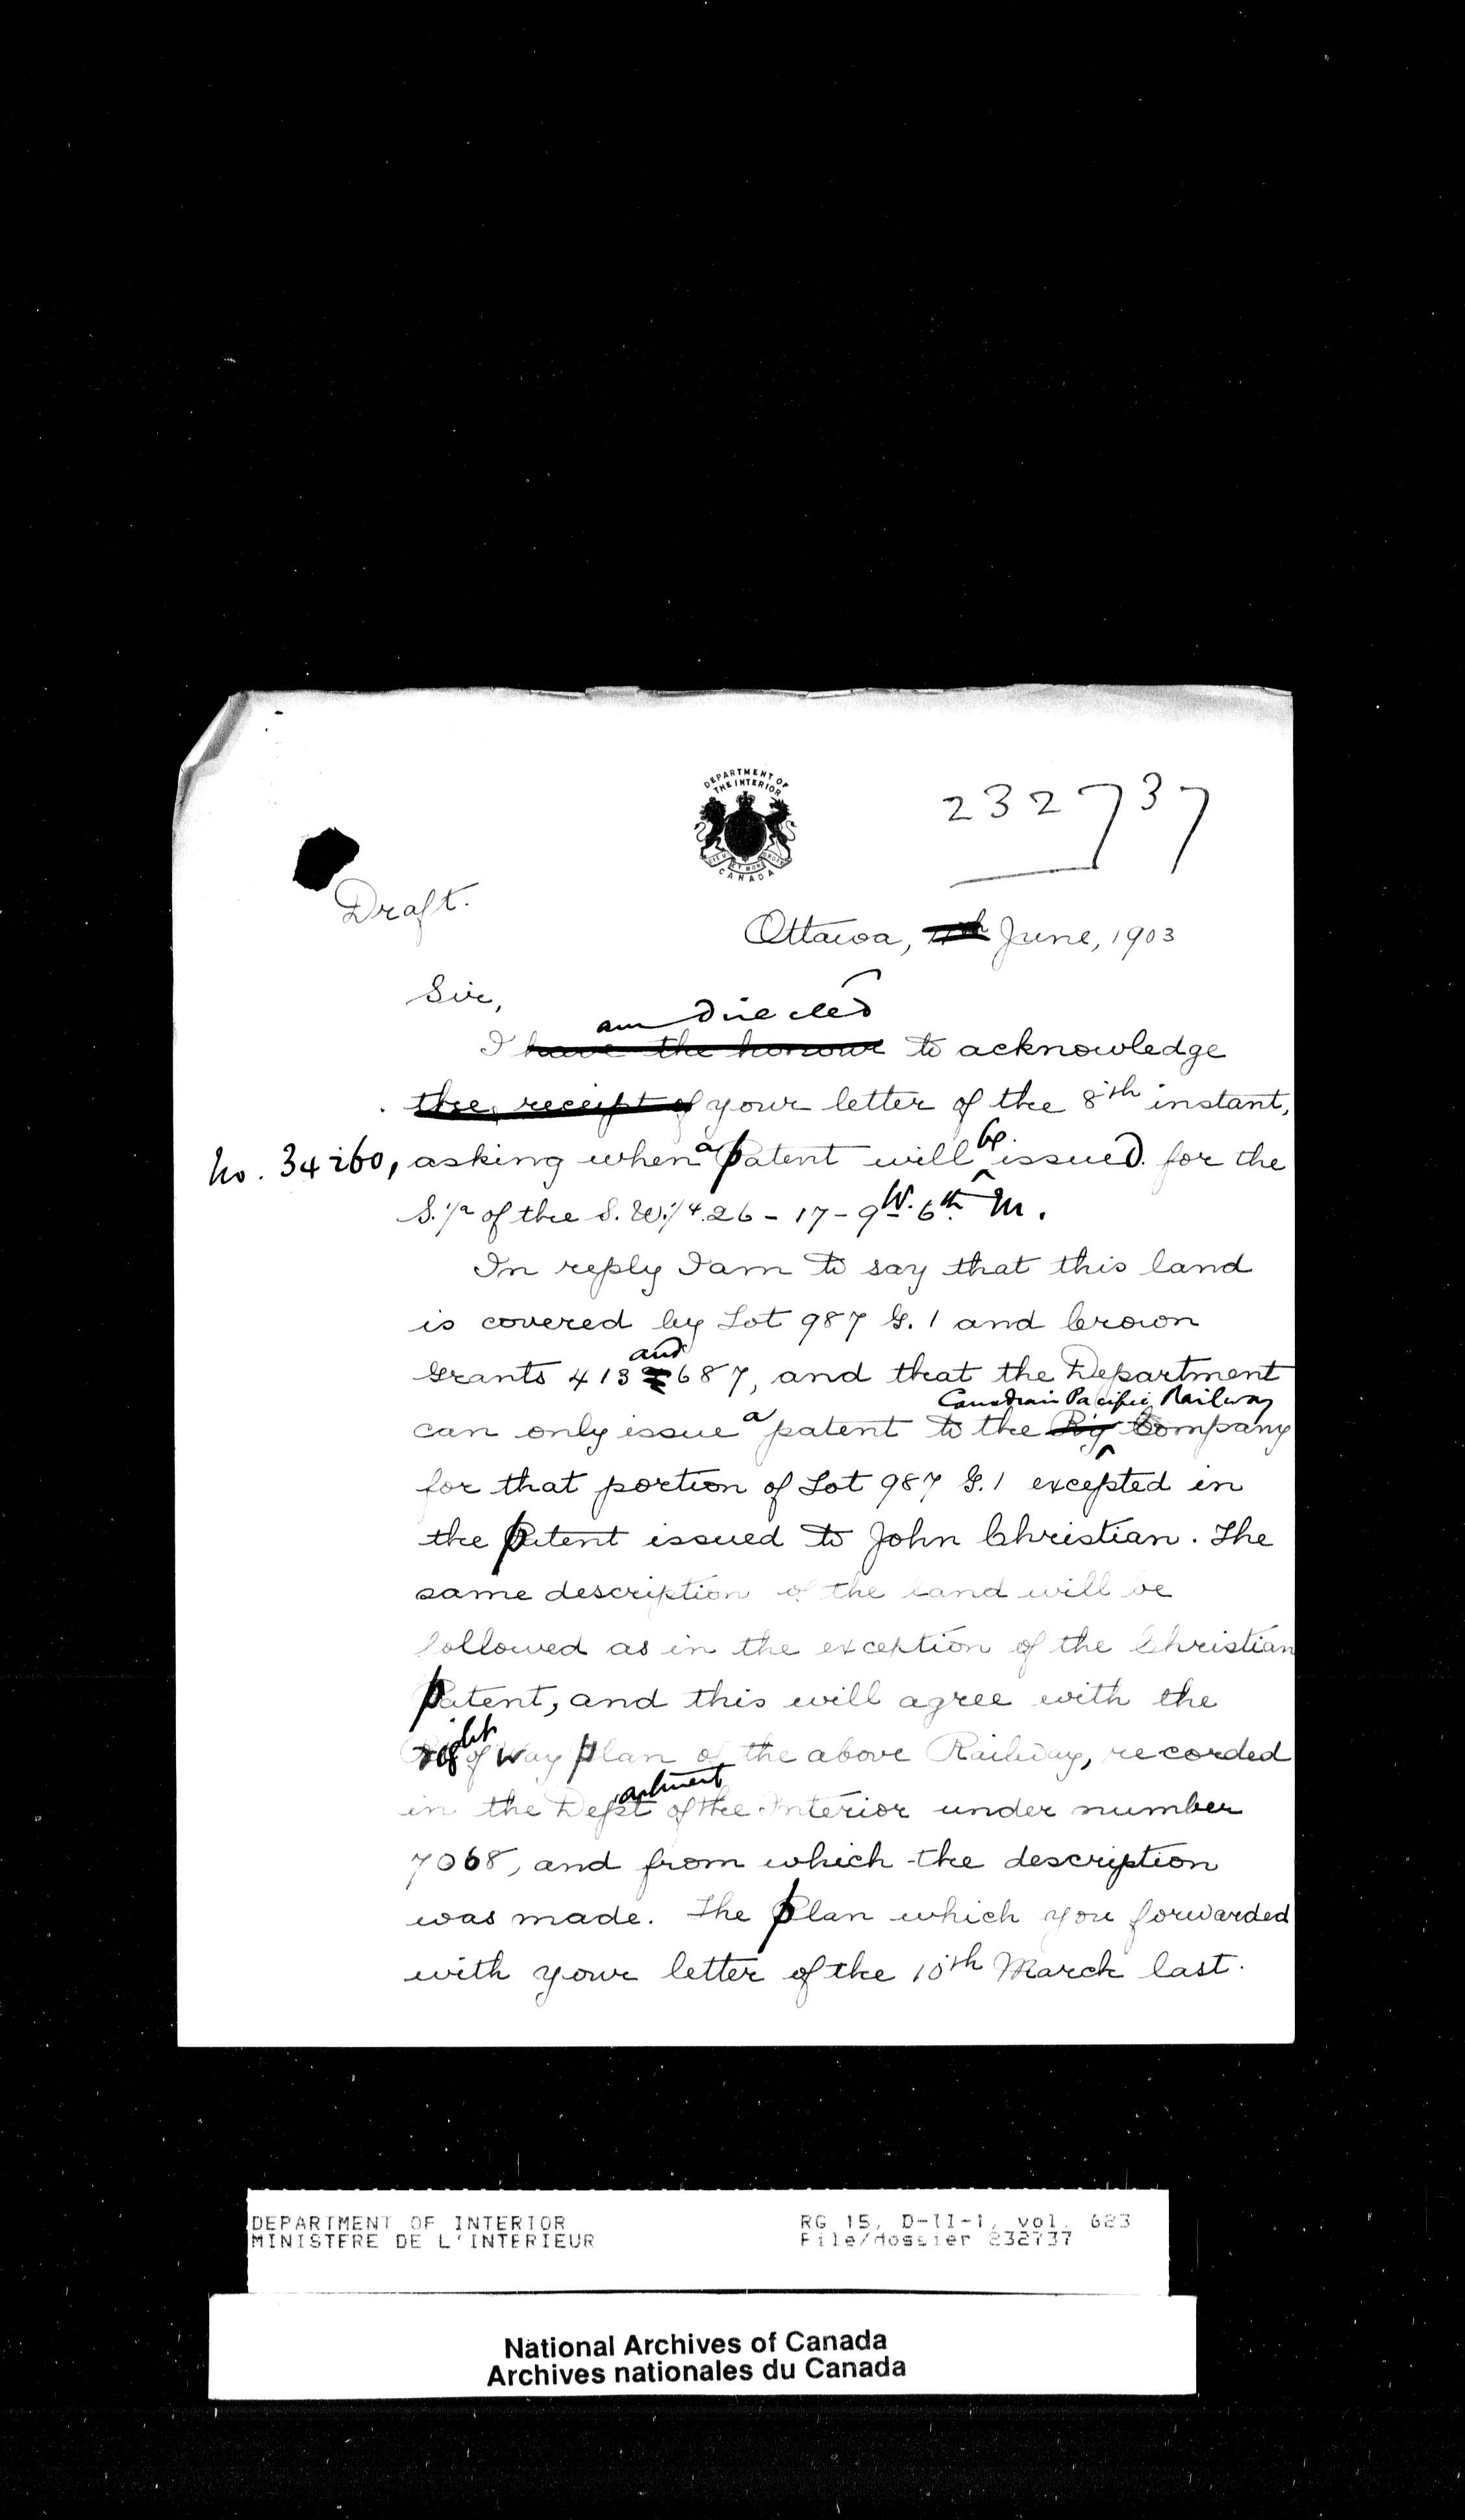 DEPARTMENT OF
THE INTERIOR
DIEU ET MON DROIT
CANADA
232737
Draft.
Ottawa, 11th June, 1903
Sir,
am directed
I have the honour to acknowledge
the receipt of your letter of the 8th instant,
No. 34260, asking when a patent will be issued for the
S. 1/2 of the S. W. 1/4 26 - 17 - 9 W. 6th M.
In reply I am to say that this land
is covered by Lot 987 G. 1 and Crown
and
Grants 413 687, and that the Department
Canadian Pacific Railway
can only issue a patent to the Ry Company
for that portion of Lot 987 G. 1 excepted in
the patent issued to John Christian. The
same description of the land will be
followed as in the exception of the Christian
patent, and this will agree with the
right of way plan of the above Railway, recorded
artment
in the Dept of the Interior under number
7068, and from which the description
was made. The plan which you forwarded
with your letter of the 10th March last.
DEPARTMENT OF INTERIOR
MINISTERE DE L'INTERIEUR
RG 15, D-II-1, vol. 623
File/dossier 232737
National Archives of Canada
Archives nationales du Canada